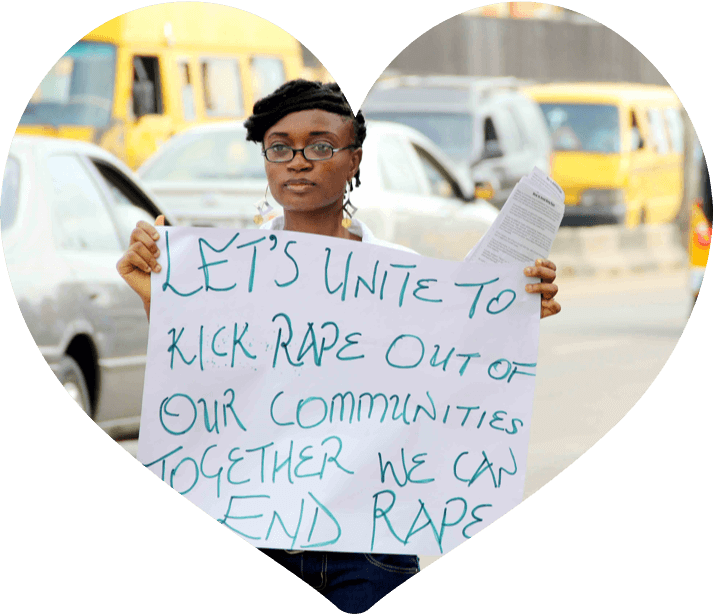 LET'S UNITE TO
KICK RAPE OUT OF
OUR COMMUNITIES
TOGETHER WE CAN
END RAPE